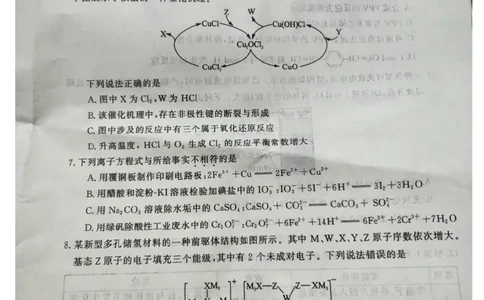 Z W
CuCl Cu(OH)Cl
X Y
Cu₂OCl₂
CuCl₂ CuO
下列说法正确的是
A. 图中 X 为 Cl₂,W 为 HCl
B. 该催化机理中,存在非极性键的断裂与形成
C. 图中涉及的反应中有三个属于氧化还原反应
D. 升高温度,HCl 与 O₂ 生成 Cl₂ 的反应平衡常数增大
7. 下列离子方程式与所给事实不相符的是
A. 用覆铜板制作印刷电路板:2Fe³⁺+Cu══2Fe²⁺+Cu²⁺
B. 用醋酸和淀粉-KI溶液检验加碘盐中的 IO₃⁻:IO₃⁻+5I⁻+6H⁺══3I₂+3H₂O
C. 用 Na₂CO₃ 溶液除水垢中的 CaSO₄:CaSO₄+CO₃²⁻══CaCO₃+SO₄²⁻
D. 用绿矾除酸性工业废水中的 Cr₂O₇²⁻:Cr₂O₇²⁻+6Fe²⁺+14H⁺══6Fe³⁺+2Cr³⁺+7H₂O
8. 某新型多孔储氢材料的一种前驱体结构如图所示。其中 M、W、X、Y、Z 原子序数依次增大。
基态 Z 原子的电子填充三个能级,其中有 2 个未成对电子。下列说法错误的是
XM₃ + M₃X—Z Z—XM₃ -
W